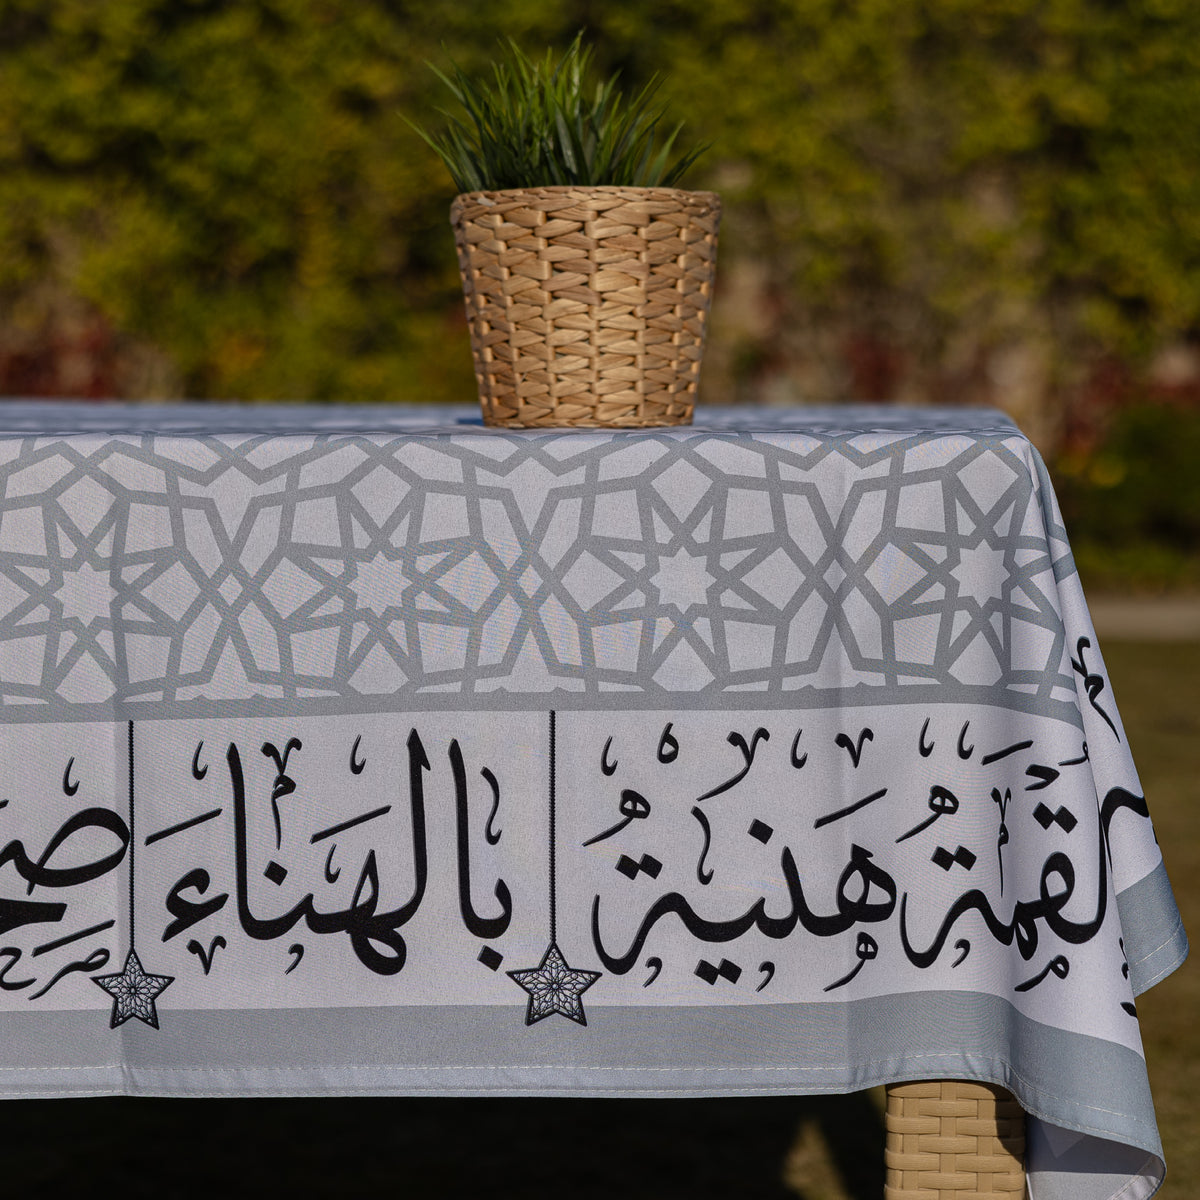 لقمة هنية
بالهناء